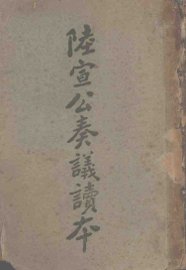 陸宣公奏議讀本